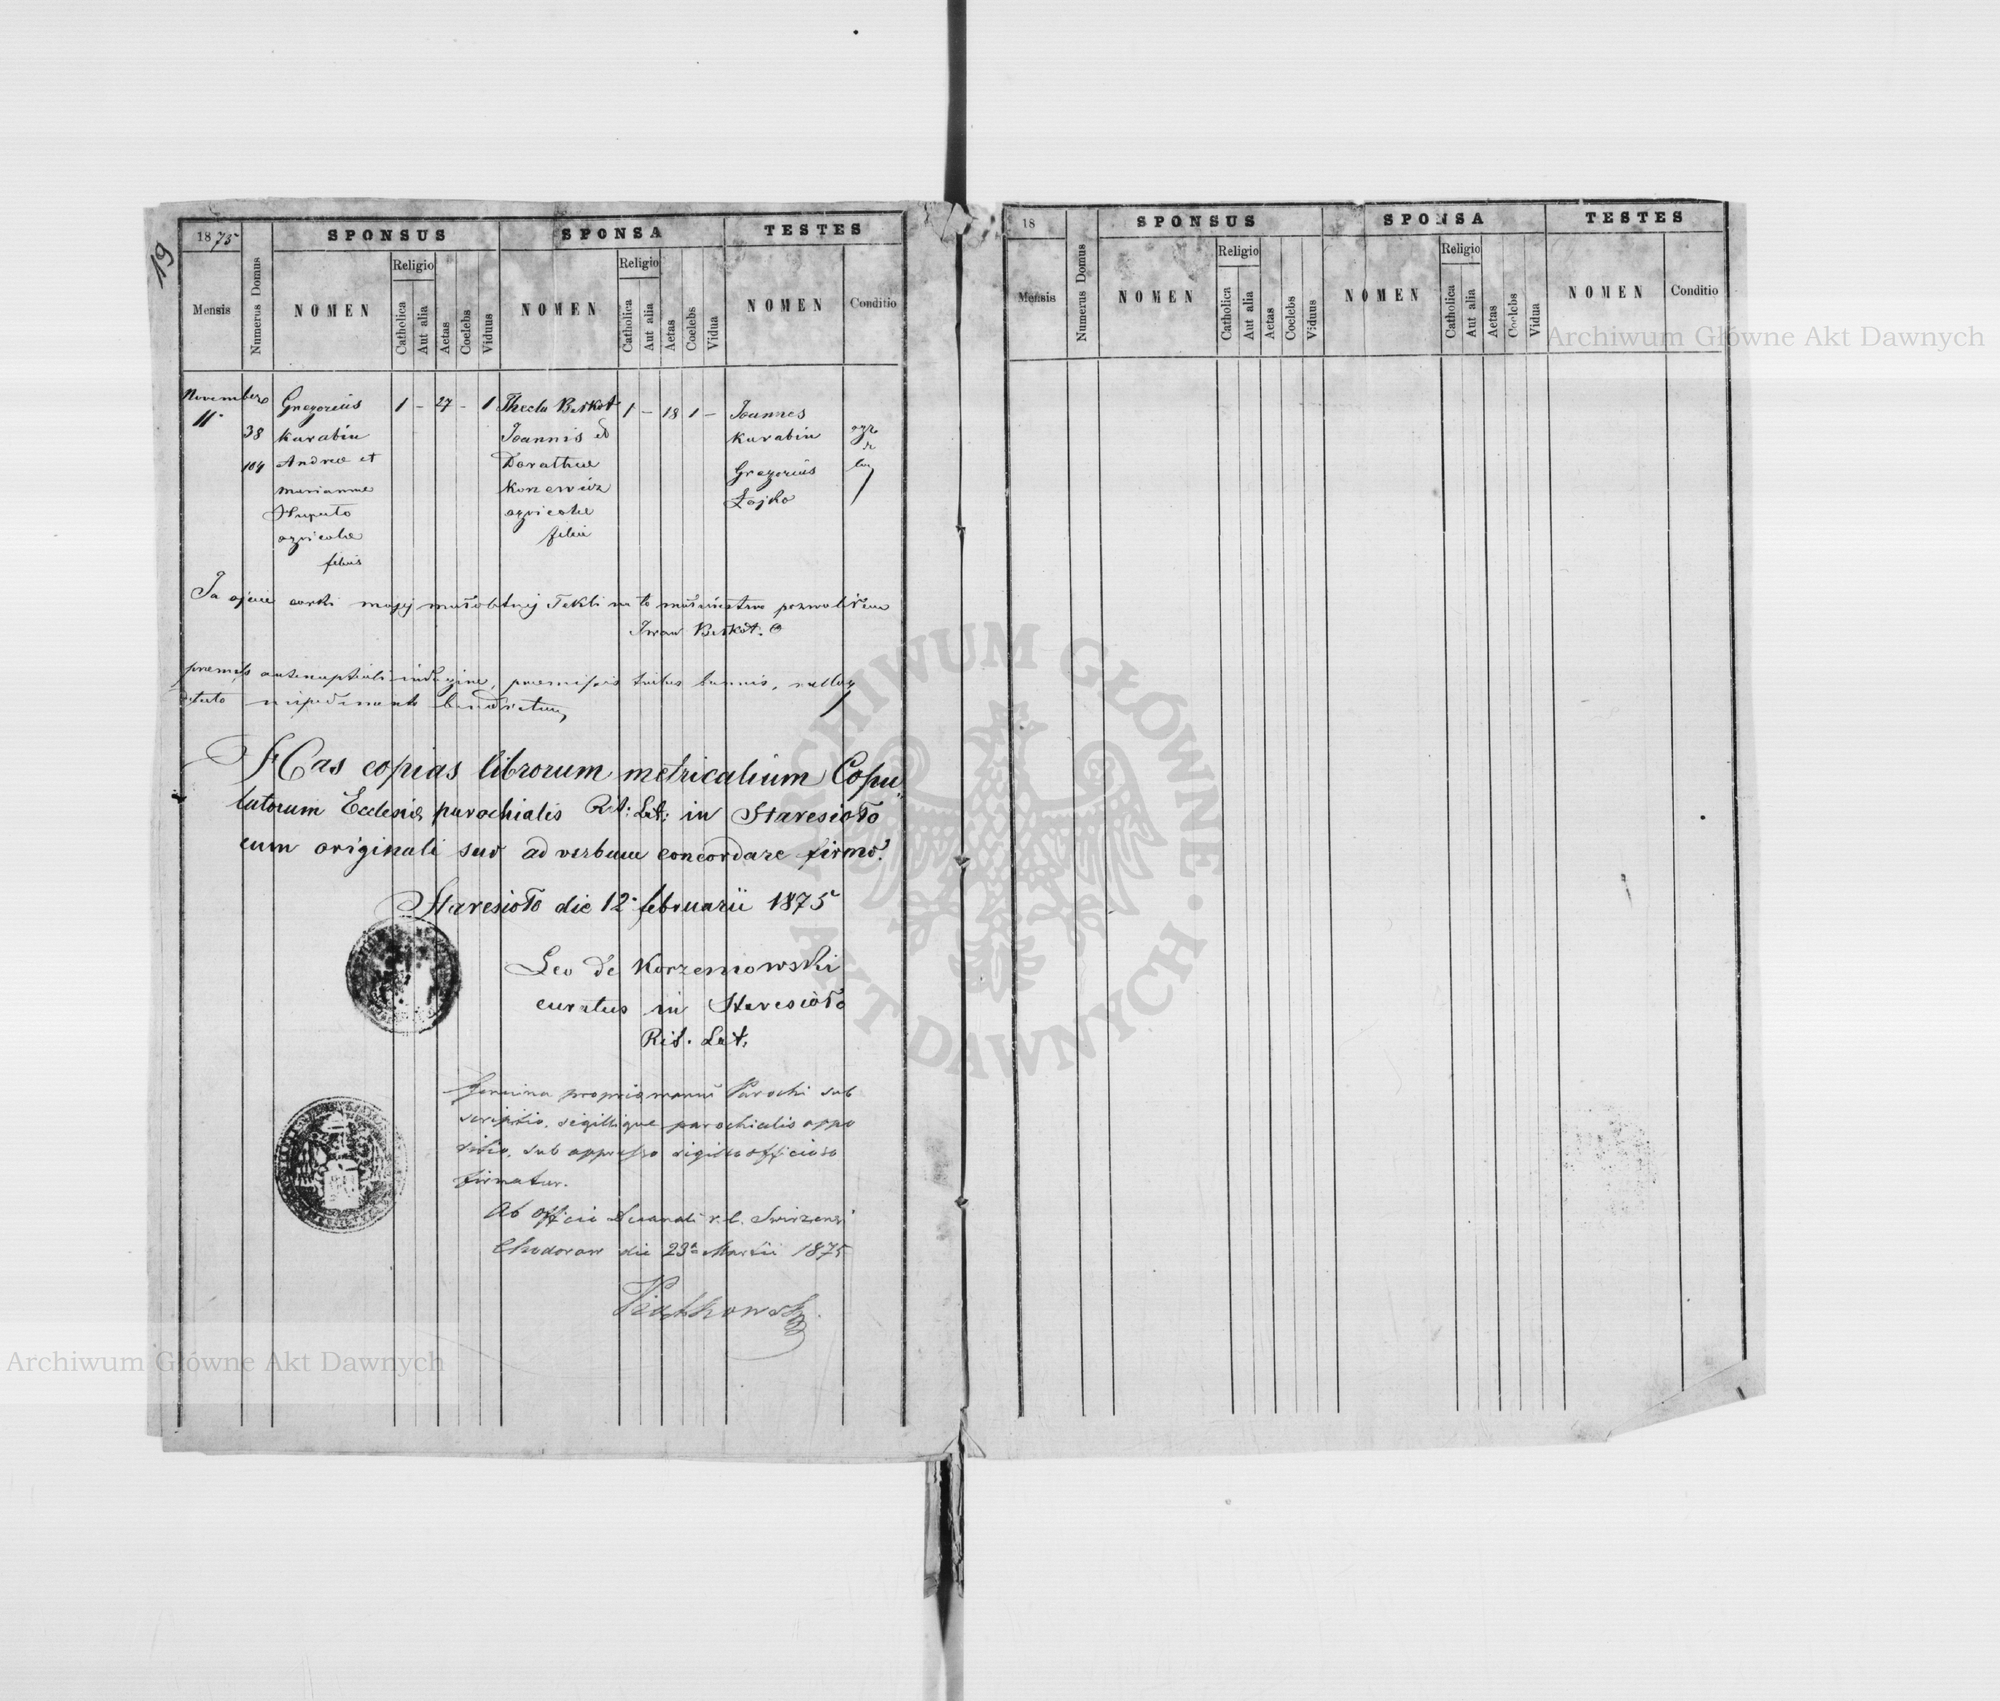 19
1875
SPONSUS
SPONSA
TESTES
Mensis
Numerus Domus
NOMEN
Religio
Catholica
Aut alia
Aetas
Coelebs
Viduus
NOMEN
Religio
Catholica
Aut alia
Aetas
Coelebs
Vidua
NOMEN
Conditio
Novembro
11
38
104
Gregorius
Karabin
Andreae et
Mariannae
agricolae
filius
1 – 27 – 1
Thecla
Joannis et
Dorotheae
agricolae
filia
1 – 18 1 –
Joannes
Karabin
Gregorius
Łojko
Ja ojciec corki mojej małoletniej Tekli na to małżeństwo pozwoliłem
Iwan
antenuptiali indagine, praemissis tribus bannis, nulloq
impedimento
Has copias librorum metricalium Copu-
latorum Ecclesiae parochialis Rit: Lat: in Staresioło
cum originali suo ad verbum concordare firmo.
Staresioło die 12 februarii 1875
Leo de Korzeniowski
curatus in Staresioło
Rit. Lat.
Genuina propriae manus Parochi sub
scriptio, sigillique parochialis appo
sitio, sub appresso sigillo officioso
firmatur.
Ab officio Decanali r. l. Swirzensi
Chodorow die 23 Martii 1875
Piątkowski
18
SPONSUS
SPONSA
TESTES
Mensis
Numerus Domus
NOMEN
Religio
Catholica
Aut alia
Aetas
Coelebs
Viduus
NOMEN
Religio
Catholica
Aut alia
Aetas
Coelebs
Vidua
NOMEN
Conditio
Archiwum Główne Akt Dawnych
ARCHIWUM GŁÓWNE · AKT DAWNYCH
Archiwum Główne Akt Dawnych